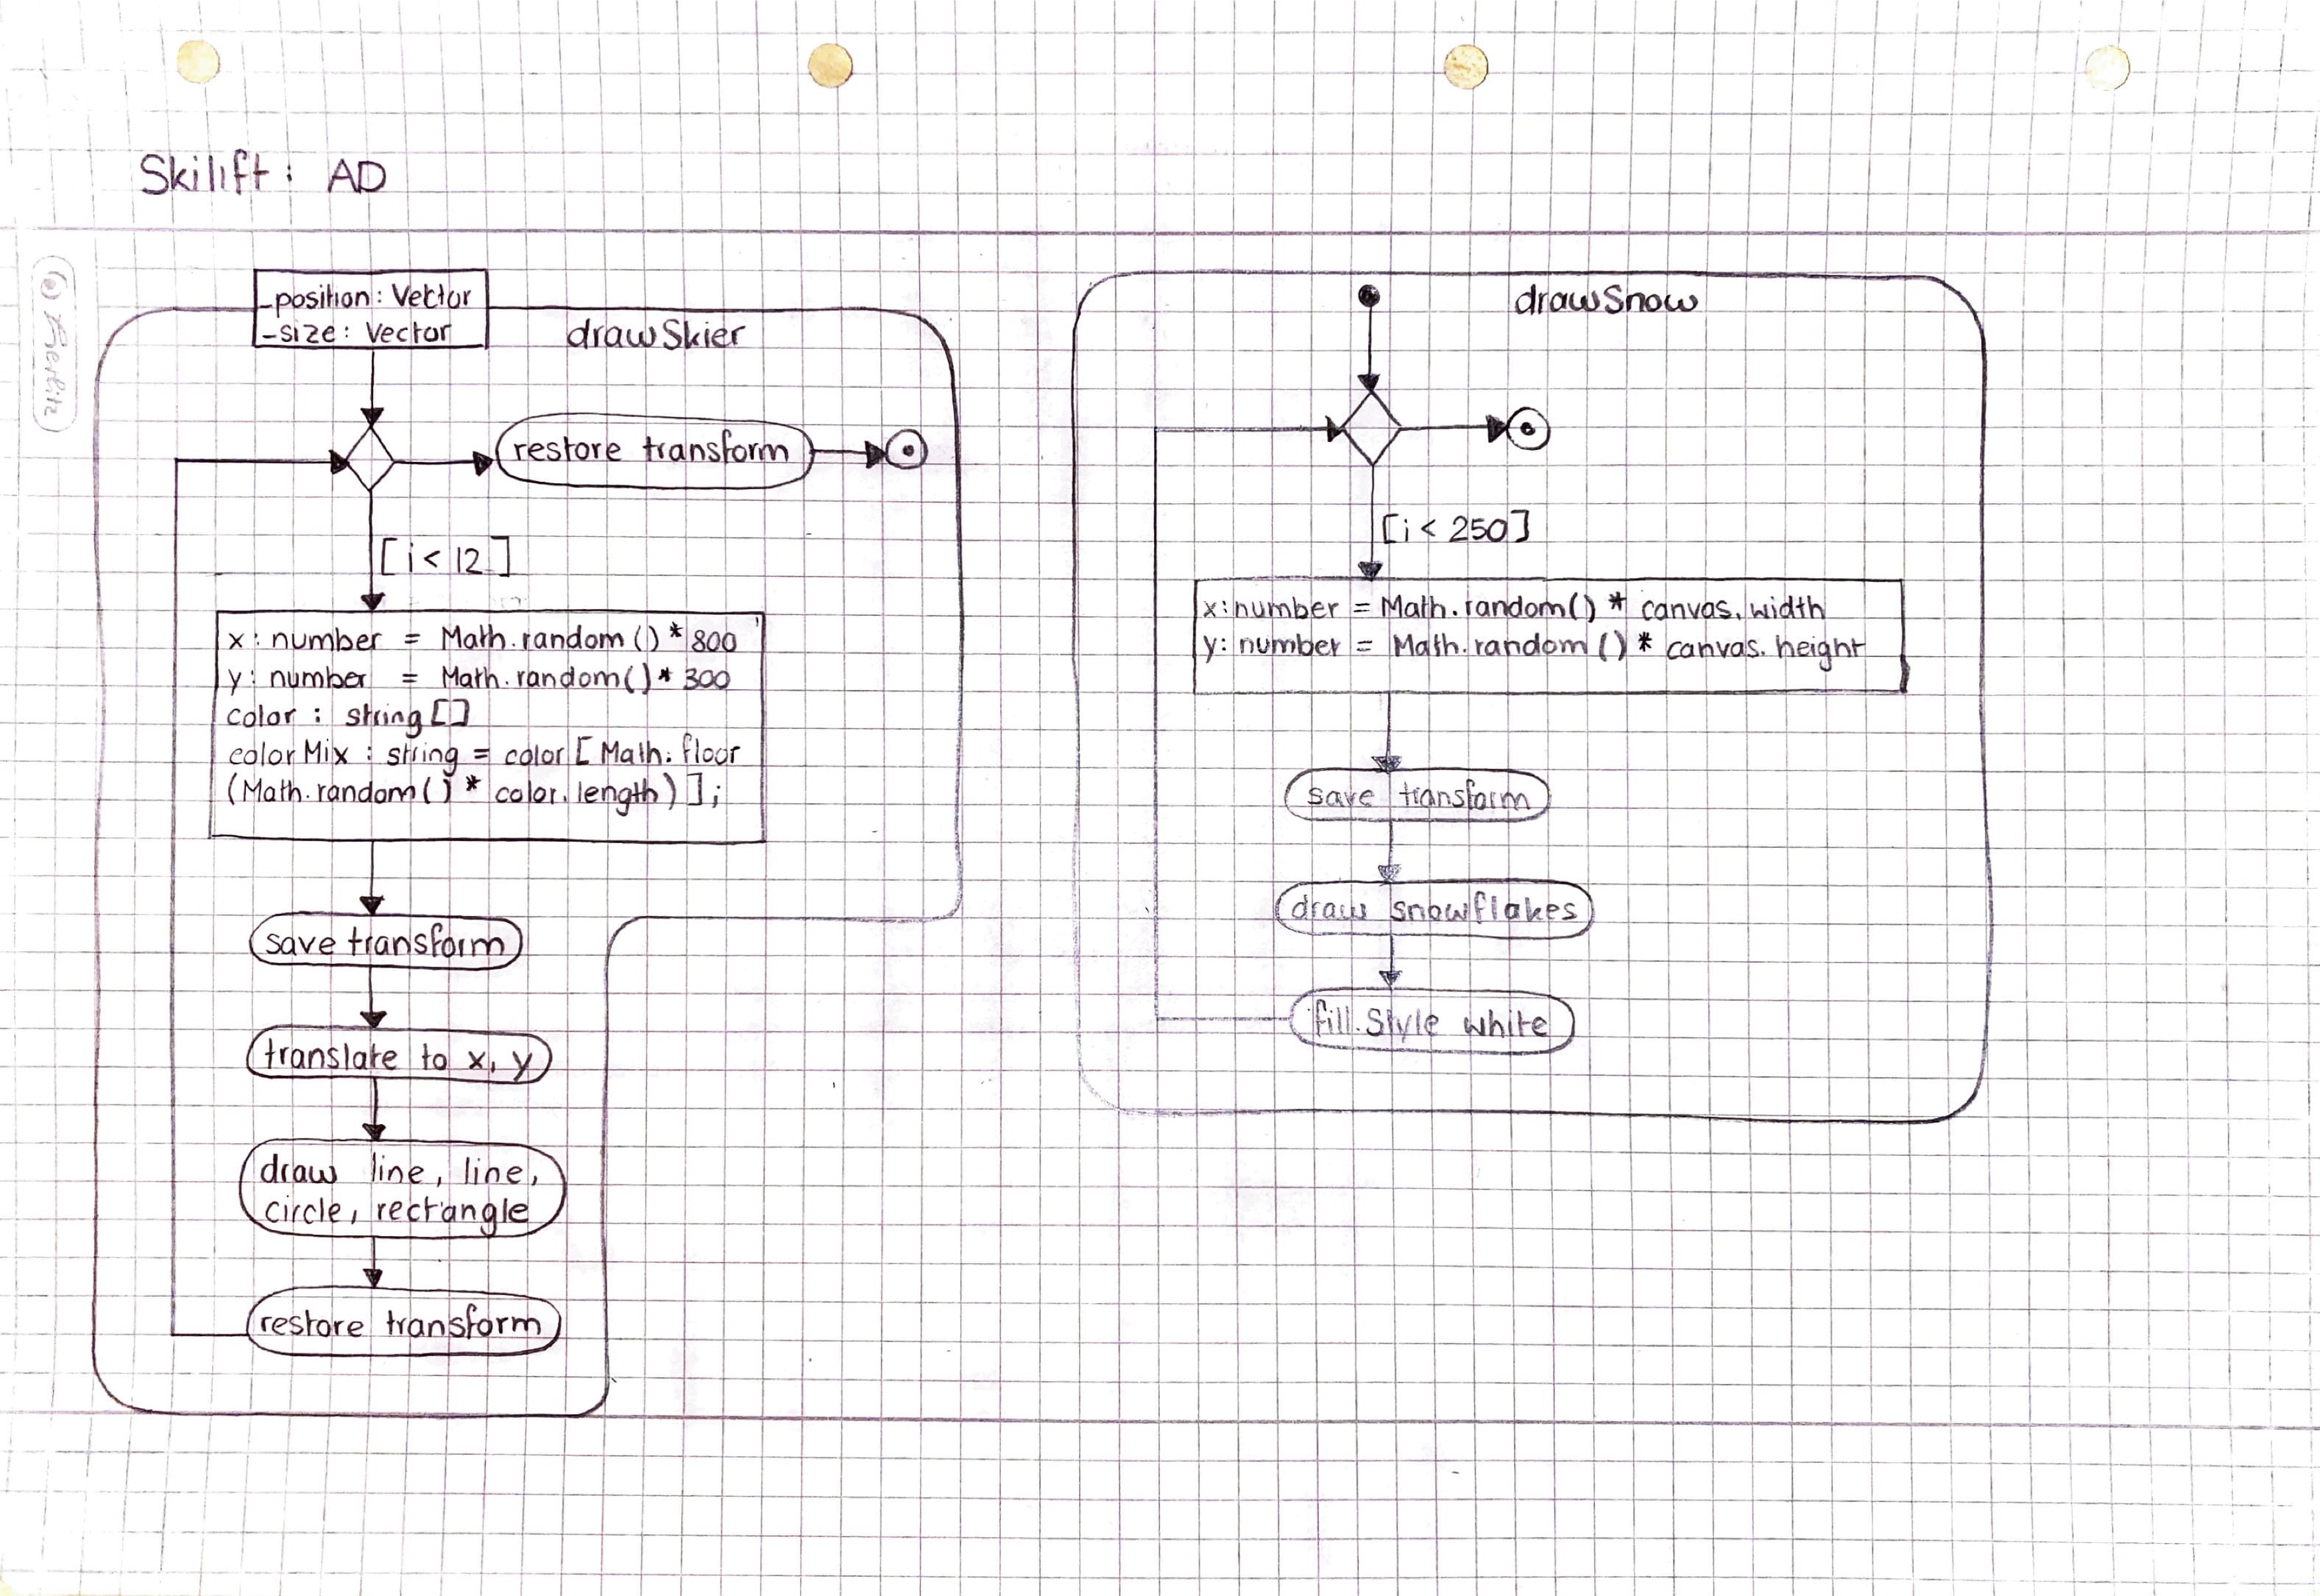 Skilift: AD
-position: Vector
-size: Vector
drawSkier
restore transform
[i < 12]
x: number = Math.random() * 800
y: number = Math.random() * 300
color: string[]
colorMix: string = color[Math.floor
(Math.random() * color.length)];
save transform
translate to x, y
draw line, line,
circle, rectangle
restore transform
drawSnow
[i < 250]
x: number = Math.random() * canvas.width
y: number = Math.random() * canvas.height
save transform
draw snowflakes
fill.Style white